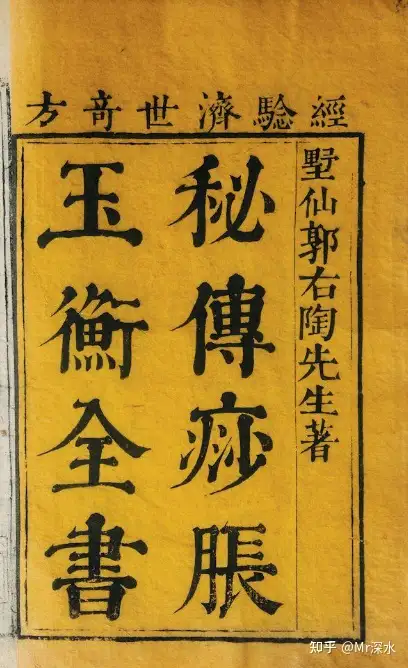 經驗濟世奇方
墅仙郭右陶先生著
秘傳痧脹
玉衡全書
知乎 @Mr深水